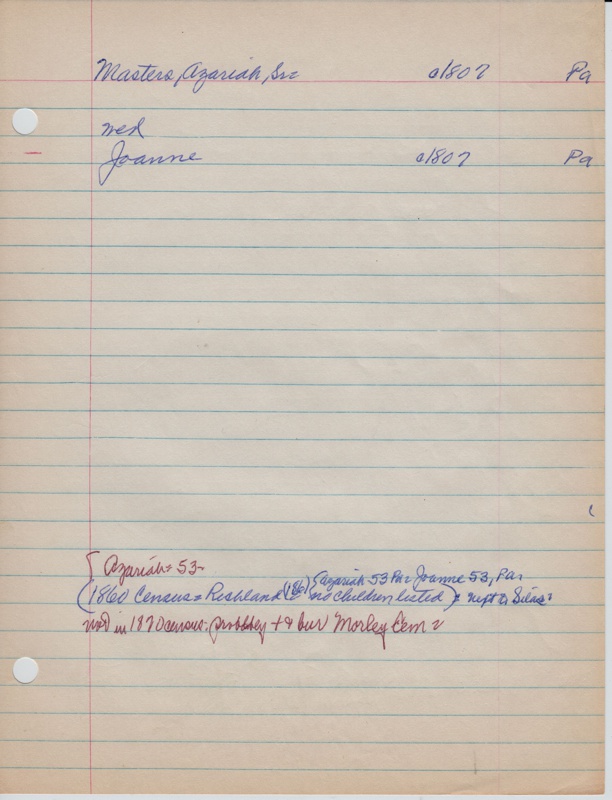 Masters, Azariah, Sr= c1807 Pa
wed
Joanne c1807 Pa
Azariah= 53-
{Azariah 53 Pa= Joanne 53, Pa=
(1860 Census= Richland (186) no children listed) = next to Silas=
not in 1870 census: probbly + & bur Morley Cem=